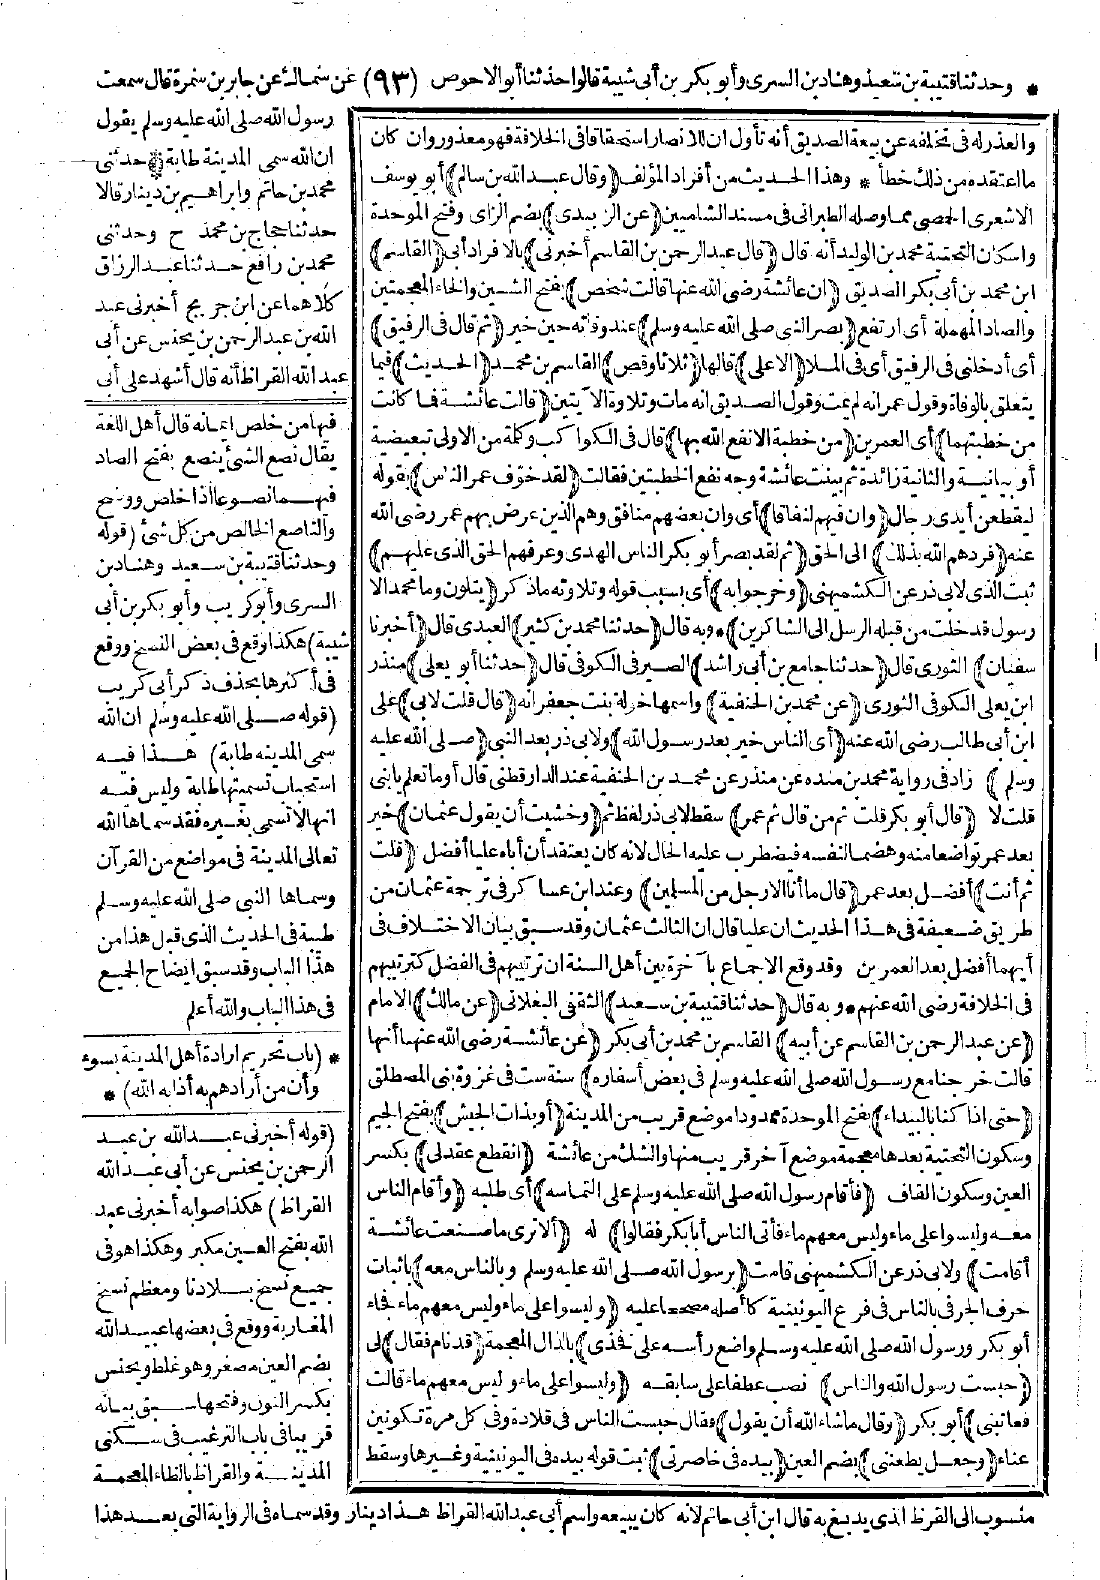 * وحدثنا قتيبة بن سعيد وهناد بن السرى وأبو بكر بن أبى شيبة قالوا حدثنا أبو الاحوص (٩٣) عن سماك عن جابر بن سمرة قال سمعت
رسول الله صلى الله عليه وسلم يقول
ان الله سمى المدينة طابة * حدثنى
محمد بن حاتم وابراهيم بن دينار قالا
حدثنا حجاج بن محمد ح وحدثنى
محمد بن رافع حدثنا عبد الرزاق
كلاهما عن ابن جريج أخبرنى عبد
الله بن عبد الرحمن بن يحنس عن أبى
عبد الله القراظ أنه قال أشهد على أبى
فيها من خلص ايمانه قال أهل اللغة
يقال نصع الشئ ينصع بفتح الصاد
فيهما نصوعا اذا خلص ووضح
والناصع الخالص من كل شئ (قوله
وحدثنا قتيبة بن سعيد وهناد بن
السرى وأبو كريب وأبو بكر بن أبى
شيبة) هكذا وقع فى بعض النسخ ووقع
فى أكثرها بحذف ذكر أبى كريب
(قوله صلى الله عليه وسلم ان الله
سمى المدينة طابة) هذا فيه
استحباب تسميتها طابة وليس فيه
انها لا تسمى بغيره فقد سماها الله
تعالى المدينة فى مواضع من القرآن
وسماها النبى صلى الله عليه وسلم
طيبة فى الحديث الذى قبل هذا من
هذا الباب وقد سبق ايضاح الجميع
فى هذا الباب والله أعلم
* (باب تحريم ارادة أهل المدينة بسوء
وأن من أرادهم به أذابه الله) *
(قوله أخبرنى عبد الله بن عبد
الرحمن بن يحنس عن أبى عبد الله
القراظ) هكذا صوابه أخبرنى عبد
الله بفتح العين مكبر وهكذا هو فى
جميع نسخ بلادنا ومعظم نسخ
المغاربة ووقع فى بعضها عبيد الله
بضم العين مصغر وهو غلط ويحنس
بكسر النون وفتحها سبق بيانه
قريبا فى باب الترغيب فى سكنى
المدينة والقراظ بالظاء المعجمة
والعذر له فى تخلفه عن بيعة الصديق أنه تأول ان للانصار استحقاقا فى الخلافة فهو معذور وان كان
ما اعتقده من ذلك خطأ * وهذا الحديث من أفراد المؤلف (وقال عبد الله بن سالم) أبو يوسف
الاشعرى الحمصى مما وصله الطبرانى فى مسند الشاميين (عن الزبيدى) بضم الزاى وفتح الموحدة
واسكان التحتية محمد بن الوليد أنه قال (قال عبد الرحمن بن القاسم أخبرنى) بالافراد أبى (القاسم)
ابن محمد بن أبى بكر الصديق (ان عائشة رضى الله عنها قالت شخص) بفتح الشين والخاء المعجمتين
والصاد المهملة أى ارتفع (بصر النبى صلى الله عليه وسلم) عند وفاته حين خير (ثم قال فى الرفيق)
أى أدخلنى فى الرفيق أى فى الملا (الاعلى) قالها (ثلاثا وقص) القاسم بن محمد (الحديث) فيما
يتعلق بالوفاة وقول عمر انه لم يمت وقول الصديق انه مات وتلاوة الآيتين (قالت عائشة فما كانت
من خطبتهما) أى العمرين (من خطبة الا نفع الله بها) قال فى الكواكب وكلمة من الاولى تبعيضية
أو بيانية والثانية زائدة ثم بينت عائشة وجه نفع الخطبتين فقالت (لقد خوف عمر الناس) بقوله
ليقطعن أيدى رجال (وان فيهم لنفاقا) أى وان بعضهم منافق وهم الذين عرض بهم عمر رضى الله
عنه (فردهم الله بذلك) الى الحق (ثم لقد بصر أبو بكر الناس الهدى وعرفهم الحق الذى عليهم)
ثبت الذى لابى ذر عن الكشميهنى (وخرجوا به) أى بسبب قوله وتلاوته ما ذكر (يتلون وما محمد الا
رسول قد خلت من قبله الرسل الى الشاكرين) * وبه قال (حدثنا محمد بن كثير) العبدى قال (أخبرنا
سفيان) الثورى قال (حدثنا جامع بن أبى راشد) الصيرفى الكوفى قال (حدثنا أبو يعلى) منذر
ابن يعلى الكوفى الثورى (عن محمد بن الحنفية) واسمها خولة بنت جعفر انه (قال قلت لابى) على
ابن أبى طالب رضى الله عنه (أى الناس خير بعد رسول الله) ولابى ذر بعد النبى (صلى الله عليه
وسلم) زاد فى رواية محمد بن منده عن منذر عن محمد بن الحنفية عند الدارقطنى قال أوما تعلم يابنى
قلت لا (قال أبو بكر قلت ثم من قال ثم عمر) سقط لابى ذر لفظ ثم (وخشيت أن يقول عثمان) خير
بعد عمر تواضعا منه وهضما لنفسه فيضطرب عليه الحال لانه كان يعتقد أن أباه عليا أفضل (قلت
ثم أنت) أفضل بعد عمر (قال ما أنا الا رجل من المسلمين) وعند ابن عساكر فى ترجمة عثمان من
طريق ضعيفة فى هذا الحديث ان عليا قال ان الثالث عثمان وقد سبق بيان الاختلاف فى
أيهما أفضل بعد العمرين وقد وقع الاجماع بآخرة بين أهل السنة ان ترتيبهم فى الفضل كترتيبهم
فى الخلافة رضى الله عنهم * وبه قال (حدثنا قتيبة بن سعيد) الثقفى البغلانى (عن مالك) الامام
(عن عبد الرحمن بن القاسم عن أبيه) القاسم بن محمد بن أبى بكر (عن عائشة رضى الله عنها أنها
قالت خرجنا مع رسول الله صلى الله عليه وسلم فى بعض أسفاره) سنة ست فى غزوة بنى المصطلق
(حتى اذا كنا بالبيداء) بفتح الموحدة ممدودا موضع قريب من المدينة (أو بذات الجيش) بفتح الجيم
وسكون التحتية بعدها معجمة موضع آخر قريب منها والشك من عائشة (انقطع عقد لى) بكسر
العين وسكون القاف (فأقام رسول الله صلى الله عليه وسلم على التماسه) أى طلبه (وأقام الناس
معه وليسوا على ماء وليس معهم ماء فأتى الناس أبا بكر فقالوا) له (ألا ترى ما صنعت عائشة
أقامت) ولابى ذر عن الكشميهنى قامت (برسول الله صلى الله عليه وسلم وبالناس معه) باثبات
حرف الجر فى بالناس فى فرع اليونينية كأصله مصححا عليه (وليسوا على ماء وليس معهم ماء فجاء
أبو بكر ورسول الله صلى الله عليه وسلم واضع رأسه على فخذى) بالذال المعجمة (قد نام فقال) لى
(حبست رسول الله والناس) نصب عطفا على سابقه (وليسوا على ماء وليس معهم ماء قالت
فعاتبنى) أبو بكر (وقال ما شاء الله أن يقول) فقال حبست الناس فى قلادة وفى كل مرة تكونين
عناء (وجعل يطعننى) بضم العين (بيده فى خاصرتى) ثبت قوله بيده فى اليونينية وغيرها وسقط
منسوب الى القرظ الذى يدبغ به قال ابن أبى حاتم لانه كان يبيعه واسم أبى عبد الله القراظ هذا دينار وقد سماه فى الرواية التى بعد هذا